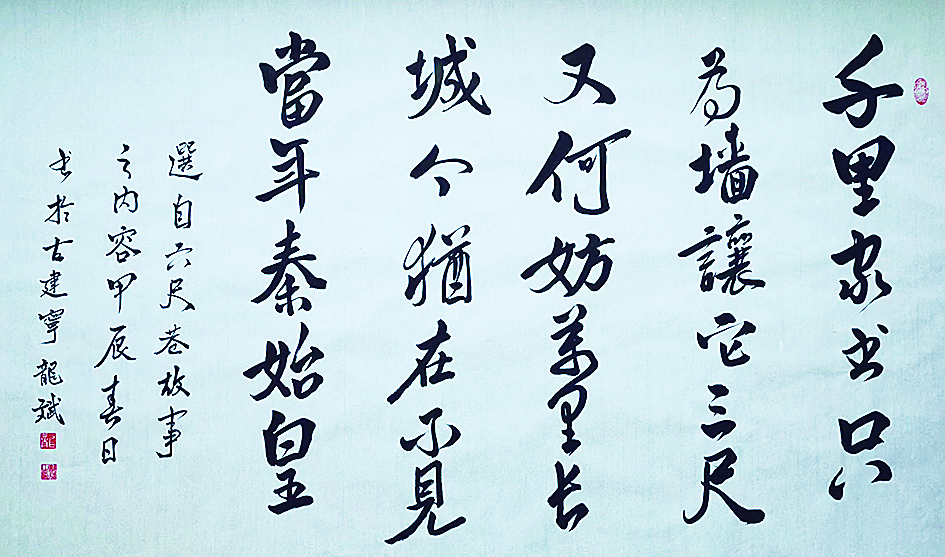 千里家书只
為墙讓它三尺
又何妨萬里长
城今猶在不見
當年秦始皇
選自六尺巷故事
之内容甲辰春日
书於古建寧龍斌